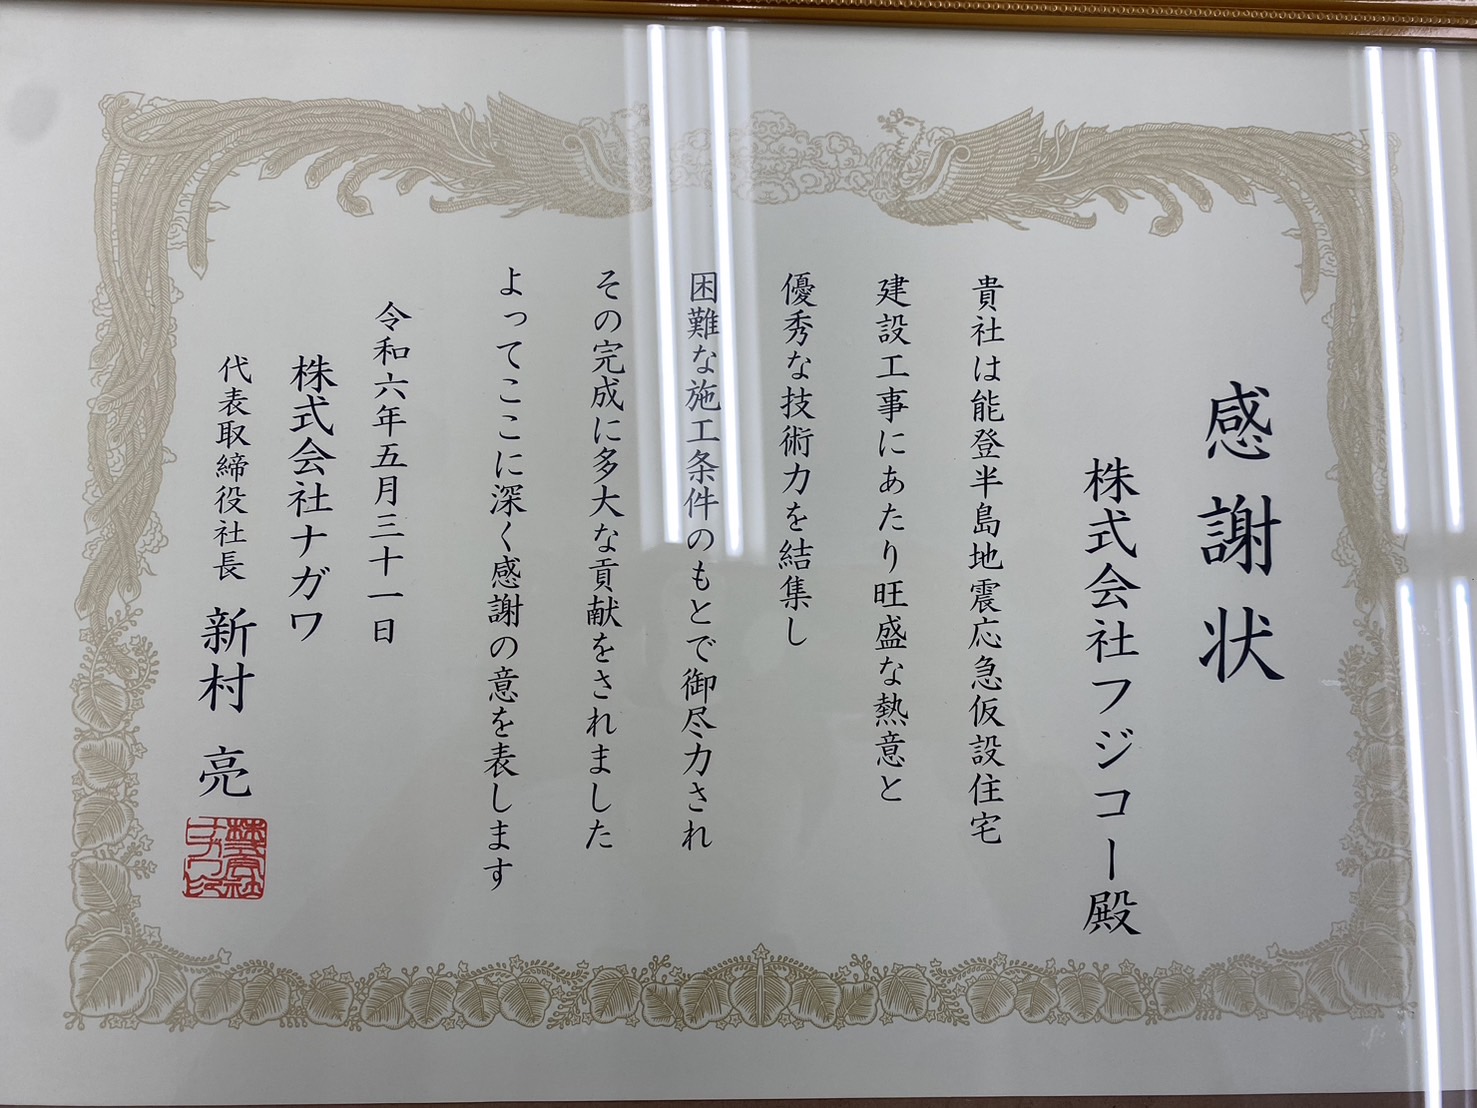 感謝状
株式会社フジコー殿
貴社は能登半島地震応急仮設住宅
建設工事にあたり旺盛な熱意と
優秀な技術力を結集し
困難な施工条件のもとで御尽力され
その完成に多大な貢献をされました
よってここに深く感謝の意を表します
令和六年五月三十一日
株式会社ナガワ
代表取締役社長 新村 亮
株式会社
ナガワ印